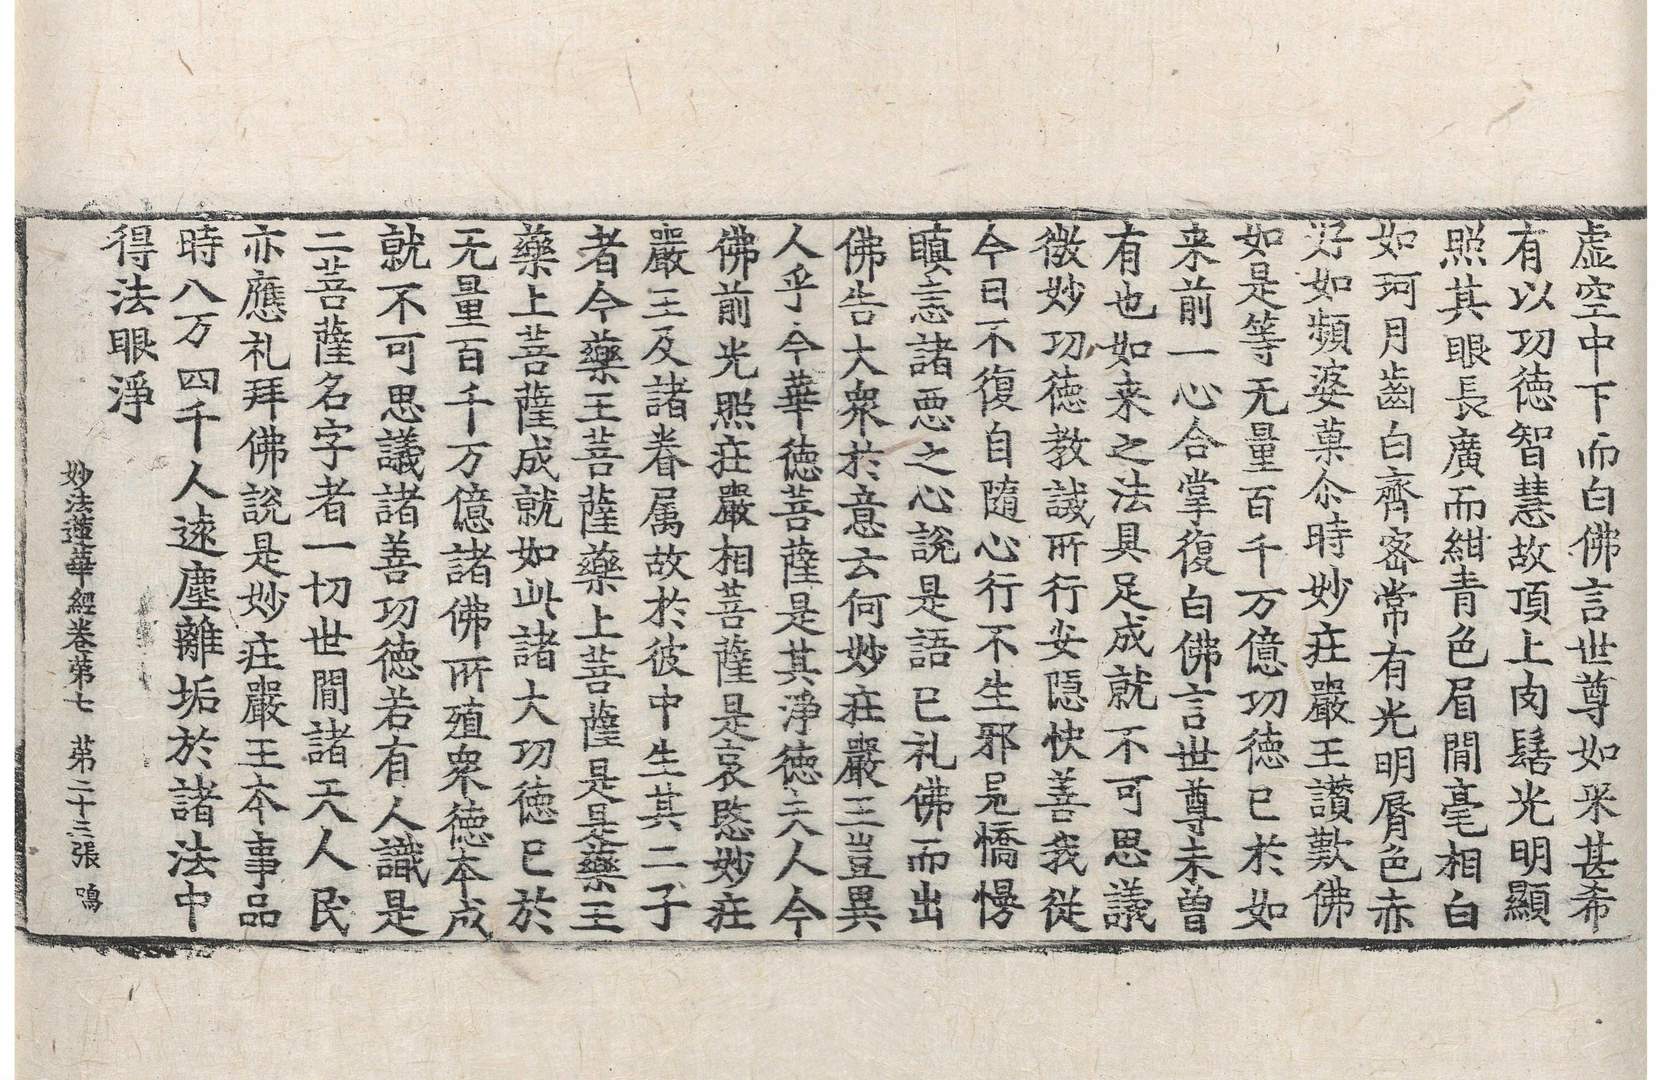 虛空中下而白佛言世尊如来甚希
有以功徳智慧故頂上肉髻光明顯
照其眼長廣而紺青色眉間毫相白
如珂月齒白齊密常有光明脣色赤
好如頻婆菓尒時妙荘嚴王讃歎佛
如是等无量百千万億功徳已於如
来前一心合掌復白佛言世尊未曽
有也如来之法具足成就不可思議
微妙功徳教誡所行安隠快善我從
今日不復自隨心行不生邪見憍慢
瞋恚諸悪之心說是語已礼佛而出
佛告大衆於意云何妙荘嚴王豈異
人乎今華徳菩薩是其淨徳夫人今
佛前光照荘嚴相菩薩是哀愍妙荘
嚴王及諸眷属故於彼中生其二子
者今藥王菩薩藥上菩薩是是藥王
藥上菩薩成就如此諸大功徳已於
无量百千万億諸佛所殖衆徳本成
就不可思議諸善功徳若有人識是
二菩薩名字者一切世間諸天人民
亦應礼拜佛說是妙荘嚴王本事品
時八万四千人遠塵離垢於諸法中
得法眼淨
妙法蓮華經卷苐七 苐二十三張 鳴